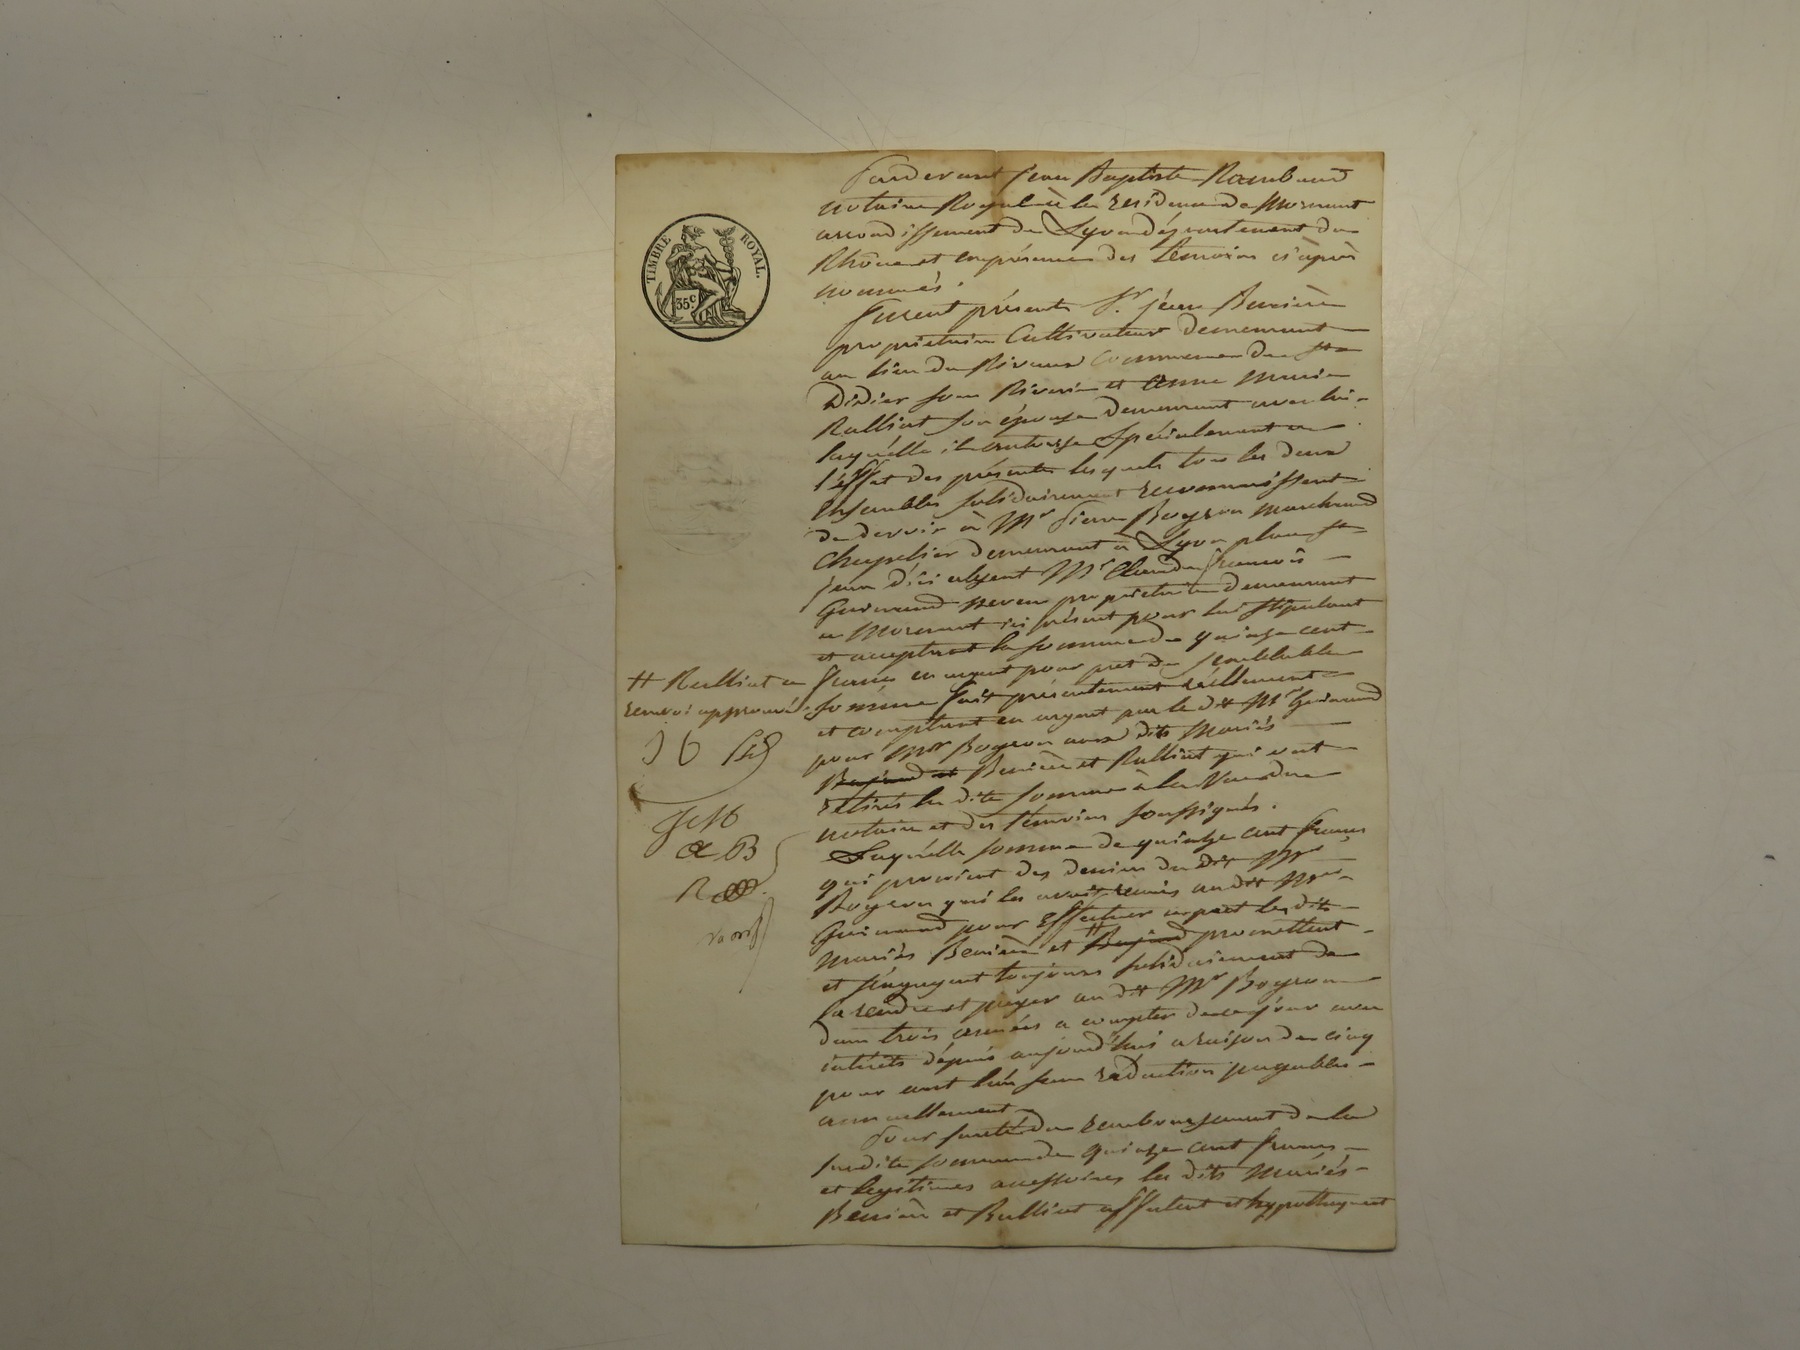 TIMBRE ROYAL.
35c
Pardevant Jean Baptiste Rambaud
notaire Royal à la residence de Mornant
arrondissement de Lyon département du
Rhône et en présence des témoins ci après
nommés.
Furent présents Sr. jean Benière
propriétaire Cultivateur demeurant
au lieu du commune de St
Didier sous Riverie et Anne Marie
Ralliat son épouse demeurant avec lui
laquelle il autorise Spécialement a
l'éffet des présentes lesquels tous les deux
ensembles solidairement reconnaissent
de devoir à Mr Pierre Boyron Marchand
Chapelier demeurant à Lyon place St
jean d'ici absent Mr Claude françois
Guinand neveu propriétaire demeurant
a Mornant ici présent pour lui stipulant
et acceptant la somme de quinze cent
francs en argent pour pret de semblable
somme fait présentement réellement
et comptant en argent par le dit Mr Guinand
pour Mr Boyron aux dits Mariés
Benière et Ralliat qui ont
retirés la dite somme à la Vue du
notaire et des témoins soussignés.
Laquélle somme de quinze cent francs
qui provient des deniers du dit Mr
Boyron qui les avait remis au dit Mr
Guinand pour éffectuer ce prêt les dits
Mariés Benière et # promettent
et s'engagent toujours solidairement de
la rendre et payer au dit Mr Boyron
dans trois années a compter de ce jour avec
intérêts dépuis aujourd'hui a raison de cinq
pour cent l'an sans réduction payables
annuellement.
Pour sureté du remboursement de la
susdite somme de quinze cent francs
et legitimes accessoires les dits Mariés
Benière et Ralliat affectent et hypothequent
# Ralliat
renvoi approuvé